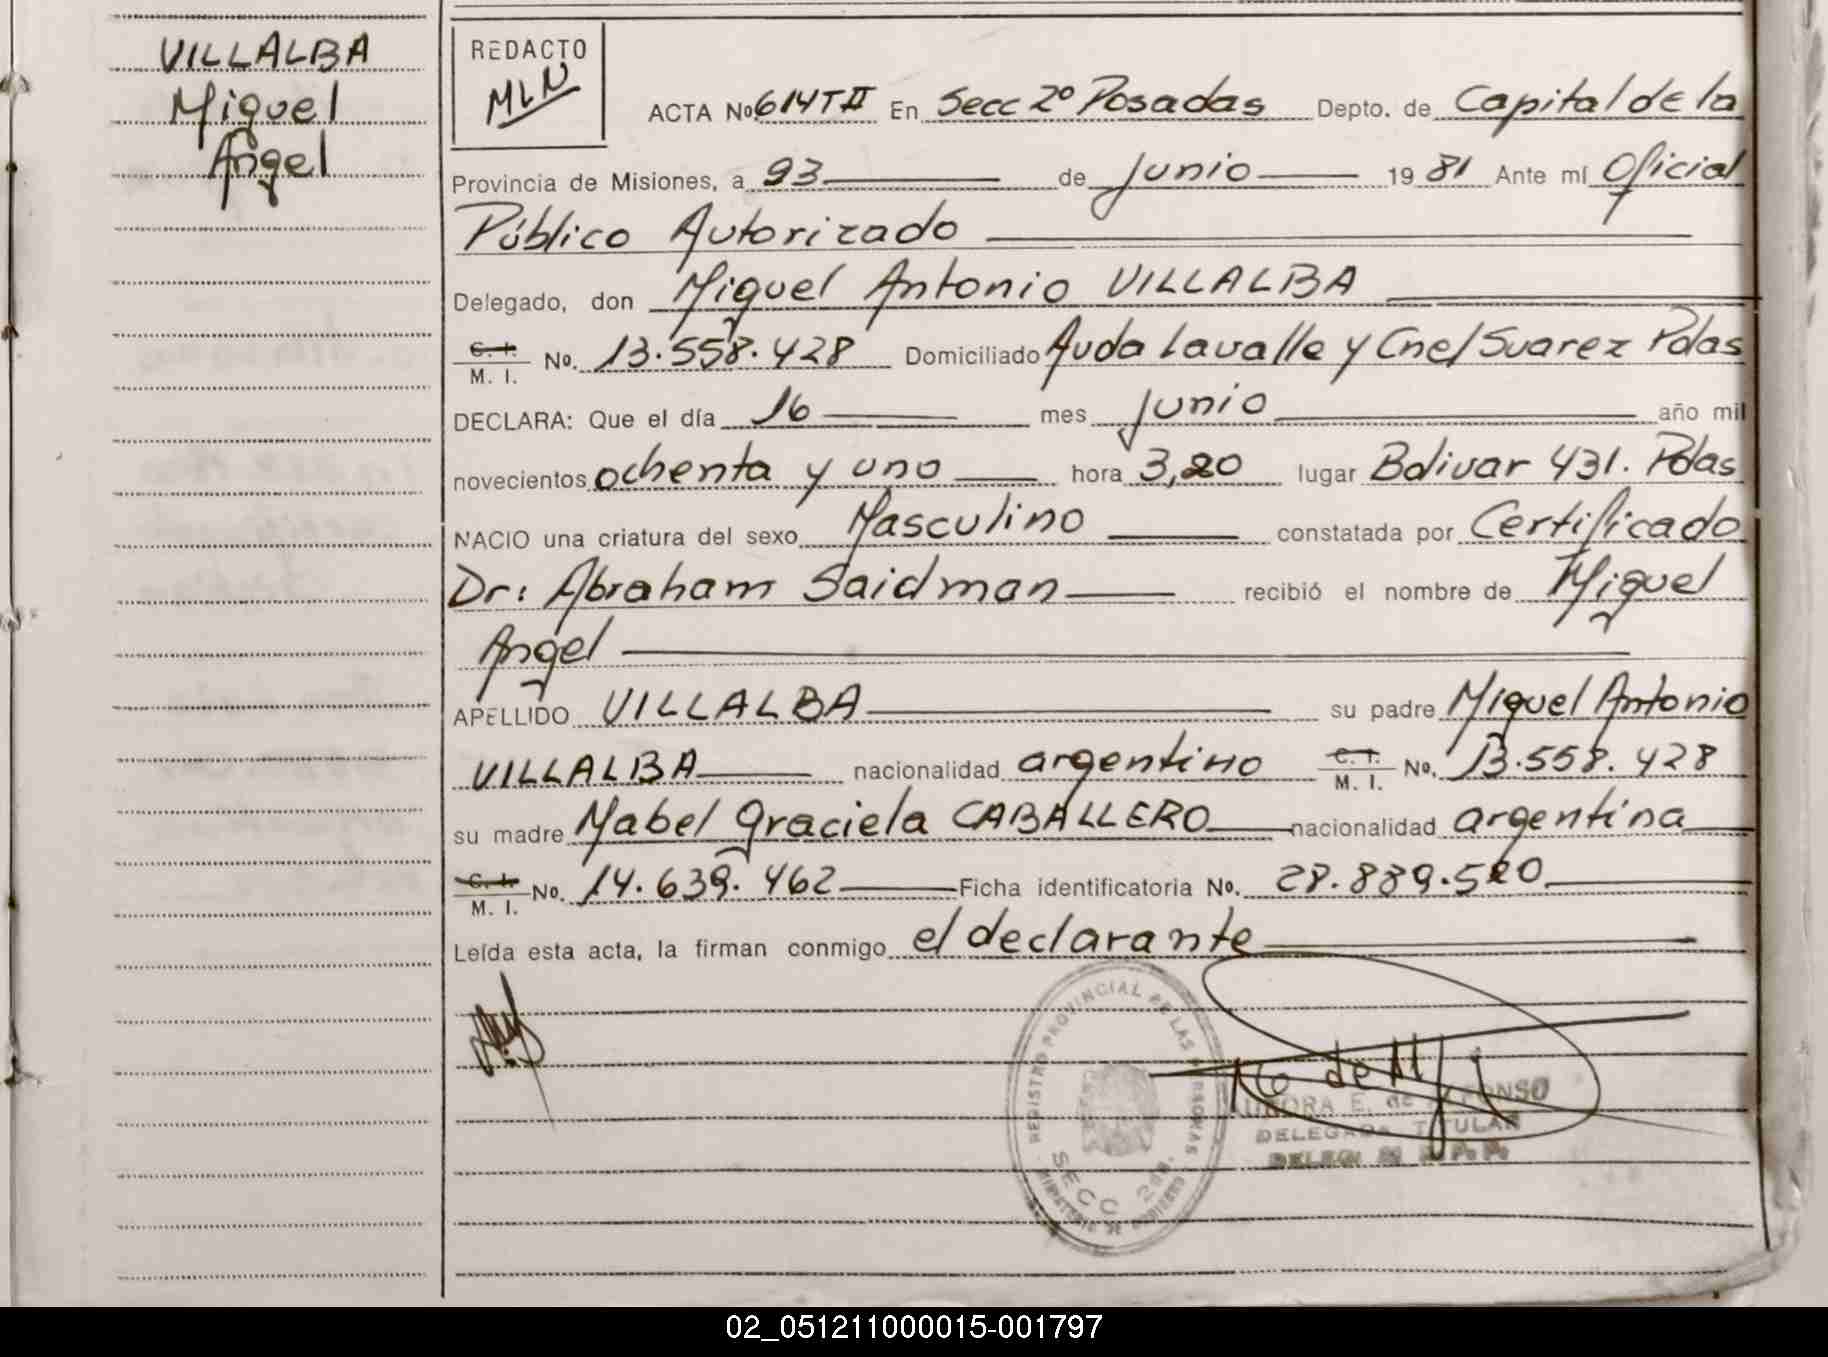 VILLALBA
Miguel
Angel
REDACTO
MLN
ACTA No 614 T II En Secc 2º Posadas Depto. de Capital de la
Provincia de Misiones, a 23 de Junio 1981 Ante mí Oficial
Público Autorizado
Delegado, don Miguel Antonio VILLALBA
C. I.
M. I. No. 13.558.428 Domiciliado Avda Lavalle y Cnel Suarez Pdas
DECLARA: Que el día 16 mes Junio año mil
novecientos ochenta y uno hora 3,20 lugar Bolivar 431. Pdas
NACIO una criatura del sexo Masculino constatada por Certificado
Dr: Abraham Saidman recibió el nombre de Miguel
Angel
APELLIDO VILLALBA su padre Miguel Antonio
VILLALBA nacionalidad argentino C. I. M. I. No. 13.558.428
su madre Mabel Graciela CABALLERO nacionalidad argentina
C. I.
M. I. No. 14.639.462 Ficha identificatoria No. 28.889.520
Leída esta acta, la firman conmigo el declarante
REGISTRO PROVINCIAL DE LAS PERSONAS
SECC 2da.
MINISTERIO DE GOBIERNO
AURORA E. de ALFONSO
DELEGADA TITULAR
02_051211000015-001797